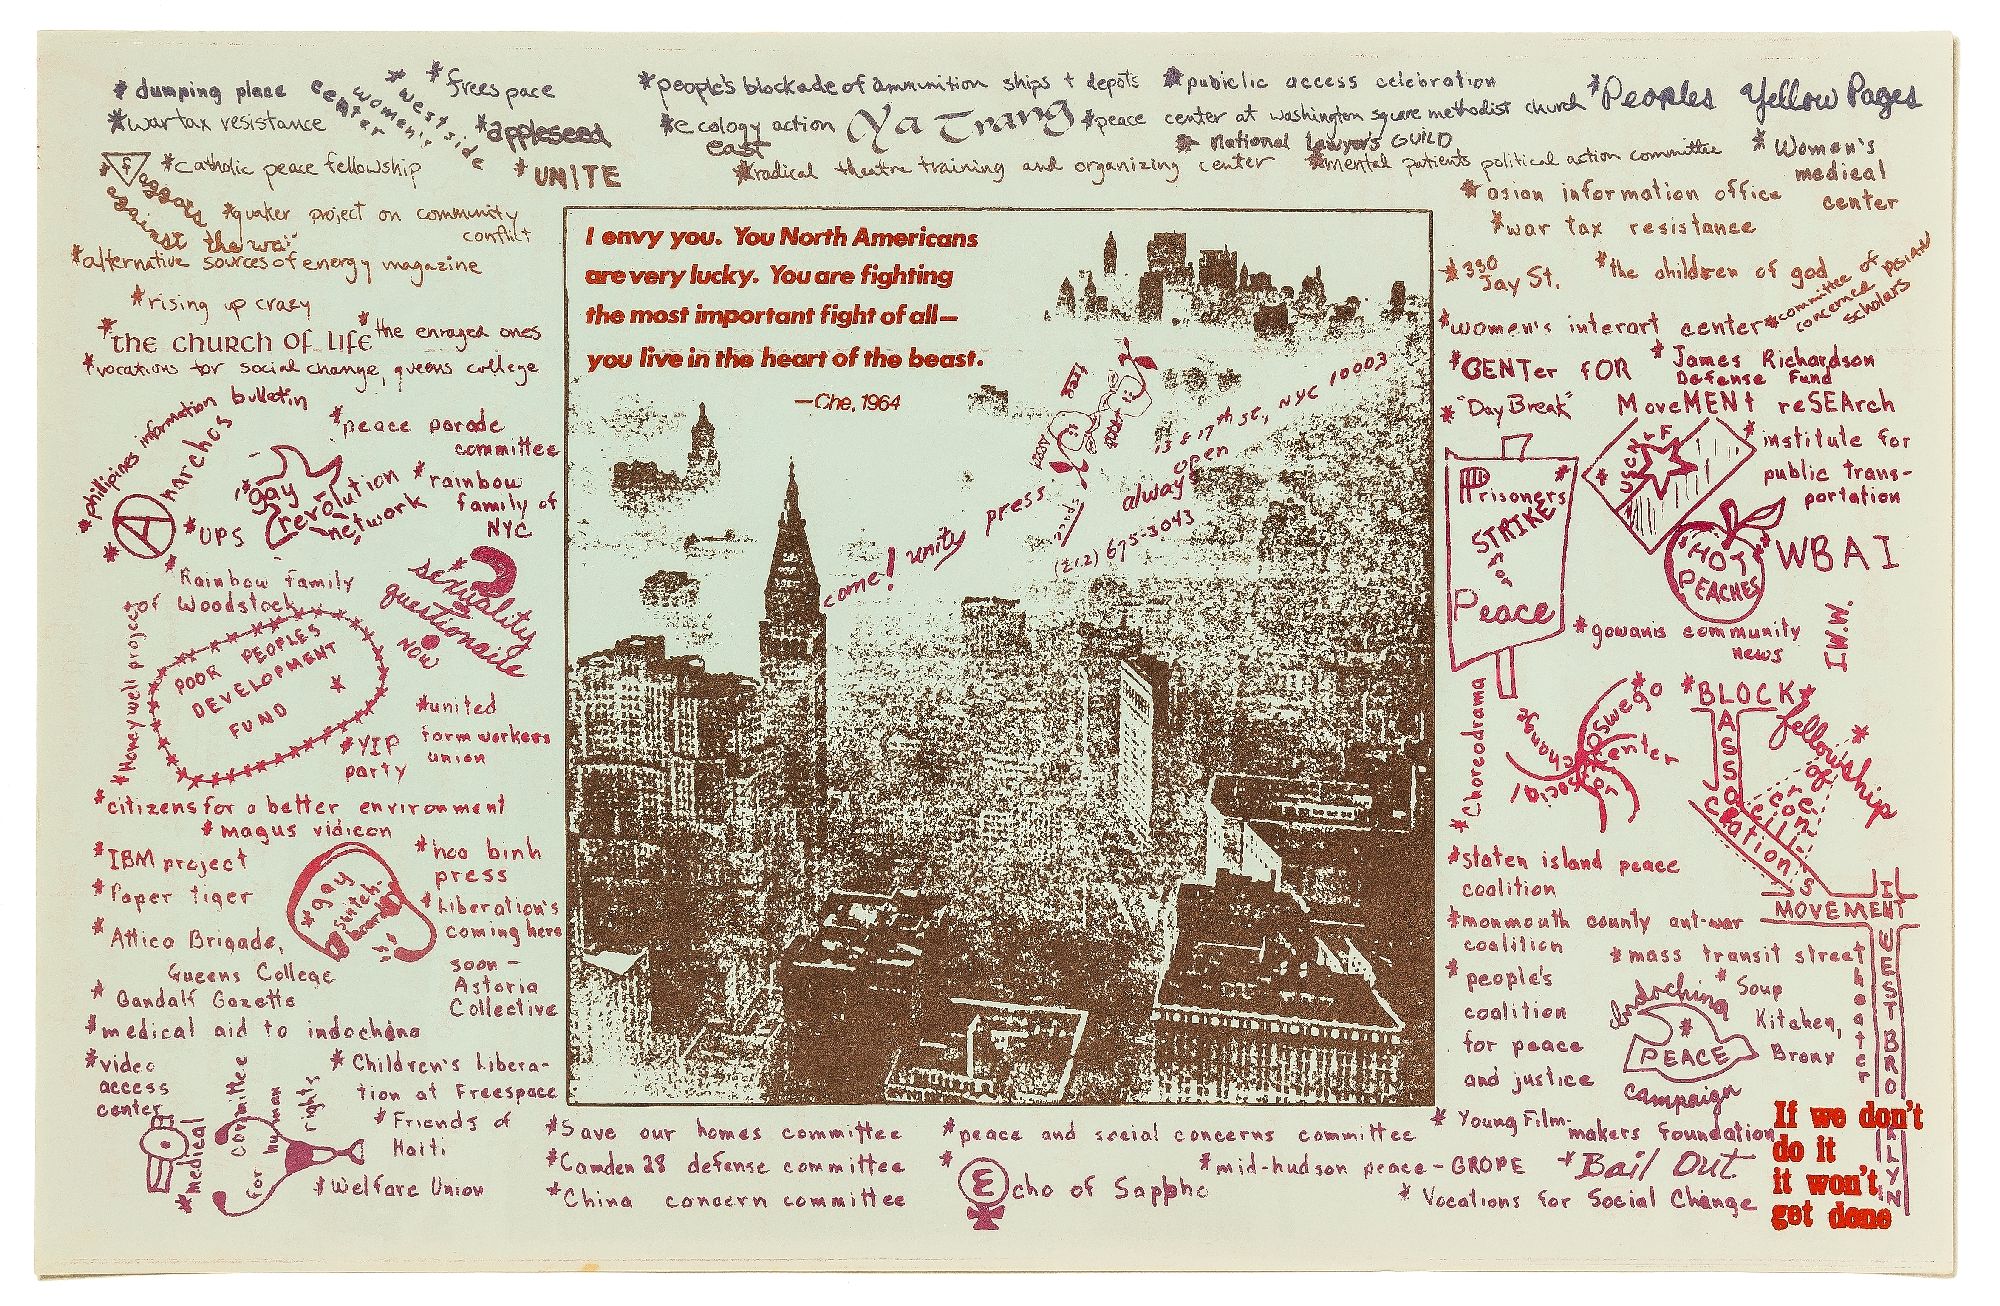 * dumping place
* west side
women's
center
* freespace
* wartax resistance
* appleseed
* UNITE
* catholic peace fellowship
* faggots
against the war
* quaker project on community
conflict
* alternative sources of energy magazine
* rising up crazy
* the church of life
* the enraged ones
* vocations for social change, queens college
* people's blockade of ammunition ships + depots
* publiclic access celebration
* Peoples Yellow Pages
* ecology action
east
Ya Trang
* peace center at washington square methodist church
* national lawyer's GUILD
* radical theatre training and organizing center
* mental patients political action committee
* Women's
medical
center
* asian information office
* war tax resistance
* 330
Jay St.
* the children of god
* committee of
concerned asian
scholars
* women's interart center
* CENTer fOR
MoveMENt reSEArch
* James Richardson
Defense Fund
* "Day Break"
* institute for
public trans-
portation
I envy you. You North Americans
are very lucky. You are fighting
the most important fight of all—
you live in the heart of the beast.
—Che, 1964
come! unity press
13 E 17th St, NYC 10003
always open
(212) 675-3043
* phillipines information bulletin
* Anarchos
* peace parade
committee
* UPS
* gay
revolution
network
* rainbow
family of
NYC
* Rainbow family
of Woodstock
sexuality
questionaile
NOW
* Honeywell project
POOR PEOPLES
DEVELOPMENT
FUND
*
* united
farmworkers
union
* YIP
party
* citizens for a better environment
* magus vidicon
* IBM project
* Paper tiger
* gay
switch-
board
* hoa binh
press
* Attica Brigade,
Queens College
* Liberation's
coming here
soon –
Astoria
Collective
* Gandalf Gazette
* medical aid to indochina
* video
access
center
* Children's Libera-
tion at Freespace
* medical
committee
for human
rights
* Friends of
Haiti
* Welfare Union
Prisoners
STRIKE
for
Peace
HOT
PEACHES
WBAI
* gowanis community
news
I.W.W.
* Choreodrama
* Oswego
Center
for
social
change
* BLOCK
ASSOCIATIONS
* fellowship
of
recon-
cilli-
ation
* staten island peace
coalition
* monmouth county ant-war
coalition
MOVEMENT
IN
WESTBROOKLYN
* people's
coalition
for peace
and justice
* mass transit street
theater
* Soup
Kitchen,
Bronx
Indochina
* PEACE
campaign
* Save our homes committee
* Camden 28 defense committee
* China concern committee
* peace and social concerns committee
* Echo of Sappho
* mid-hudson peace – GROPE
* Young Film-
makers Foundation
* Bail Out
* Vocations for Social Change
If we don't
do it
it won't
get done